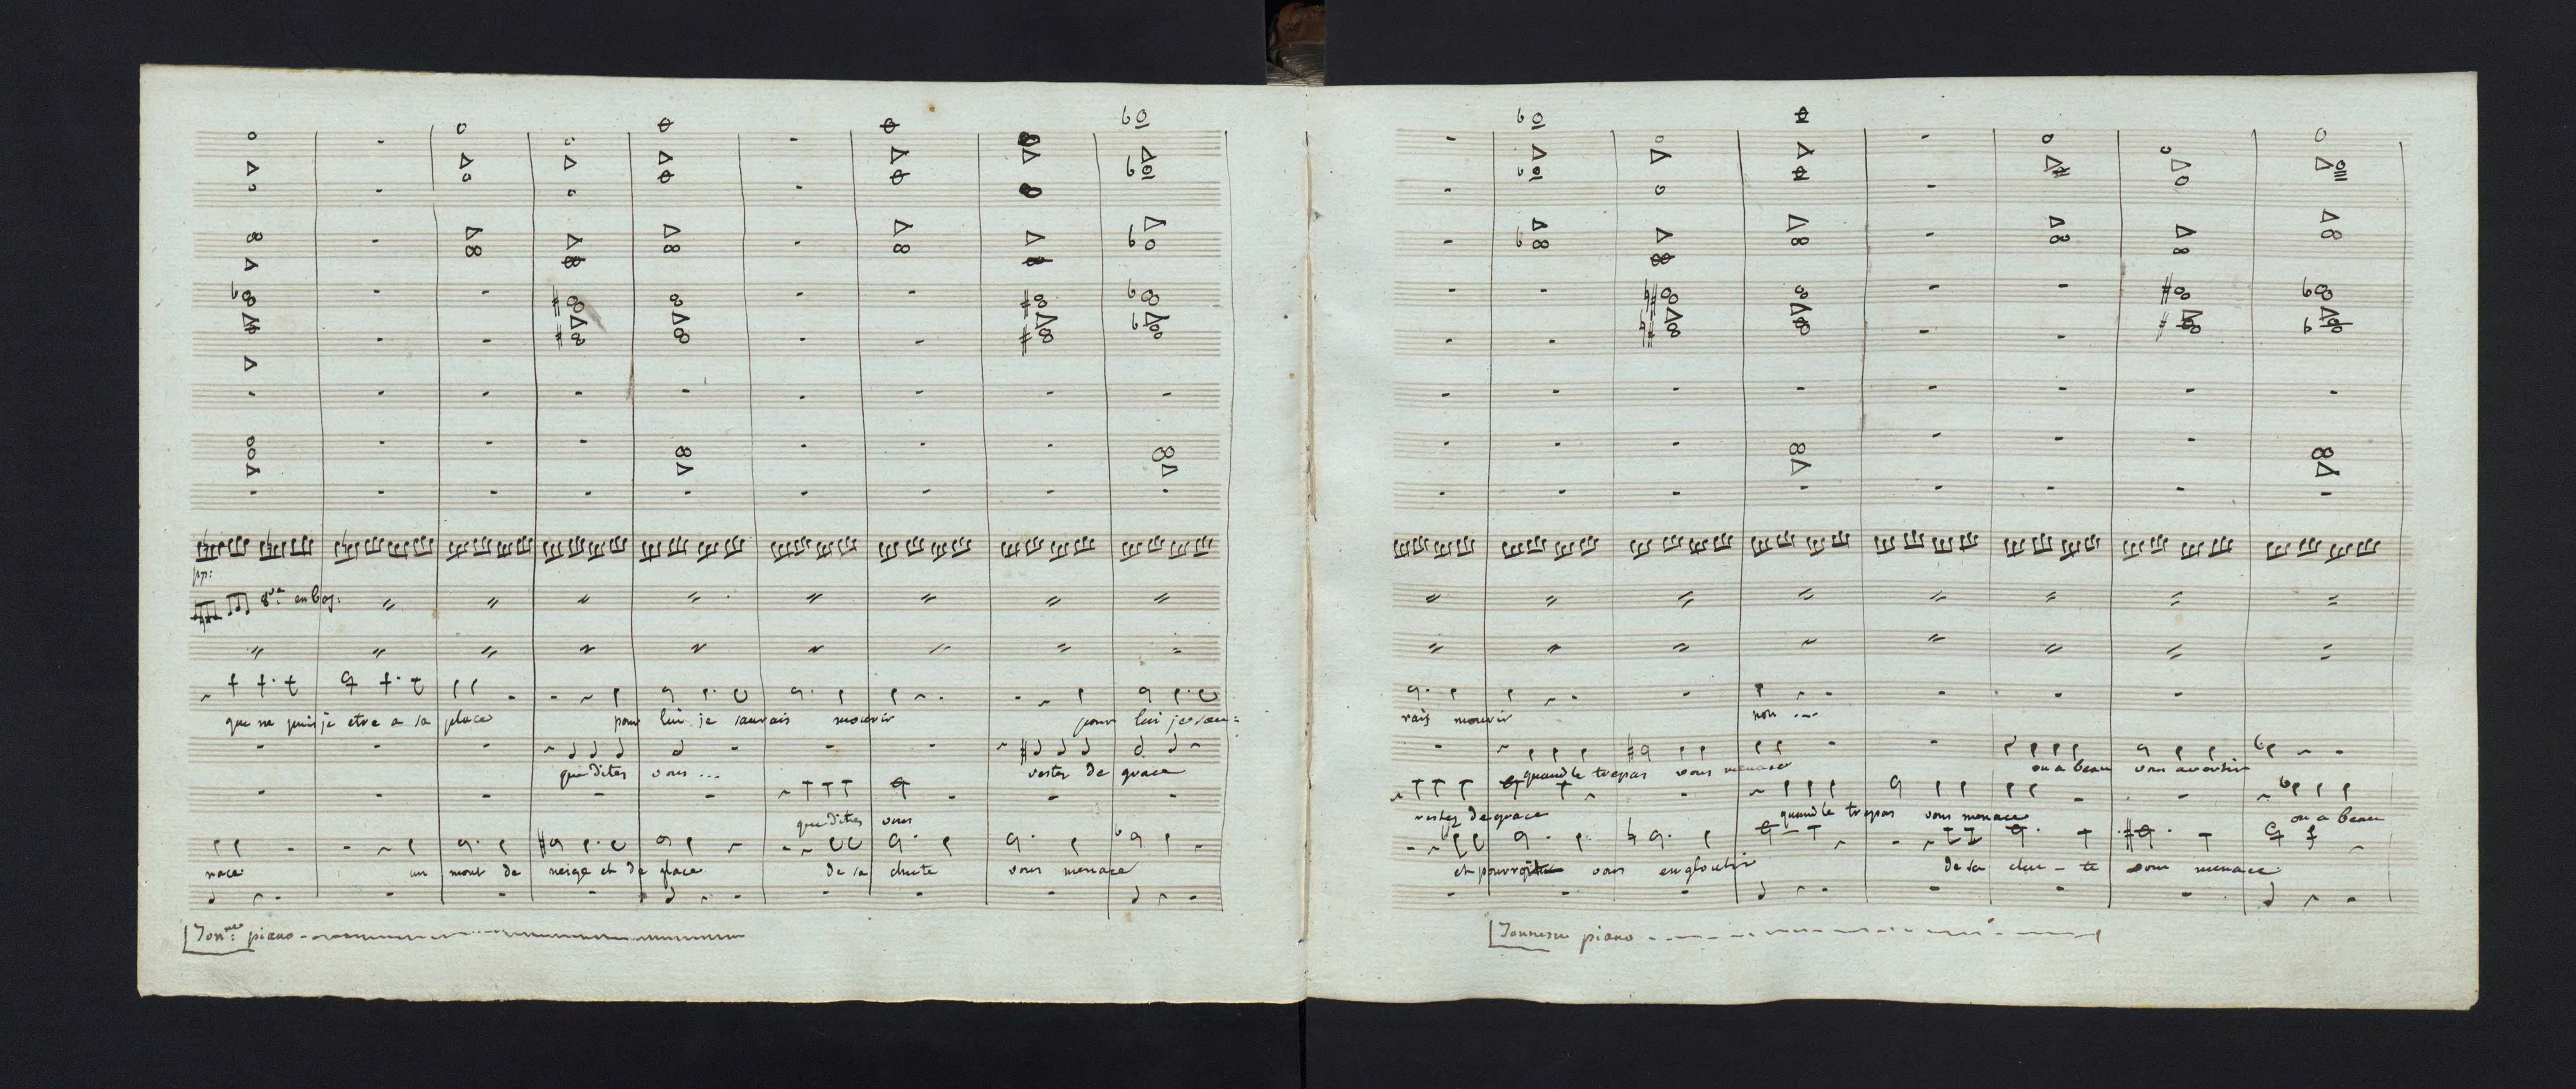 pp:
8va en bas.
que ne puis je etre a sa place pour lui je saurais mourir pour lui je sau=
que dites vous ... restez de grace
que dites vous
nace un mont de neige et de glace de sa chute vous menace
Tonre: piano
rais mourir non ...
quand le trepas vous menace on a beau vous avertir
restez de grace quand le trepas vous menace on a beau
et pourroit vous engloutir de sa chu - te vous menace
Tonnerre piano